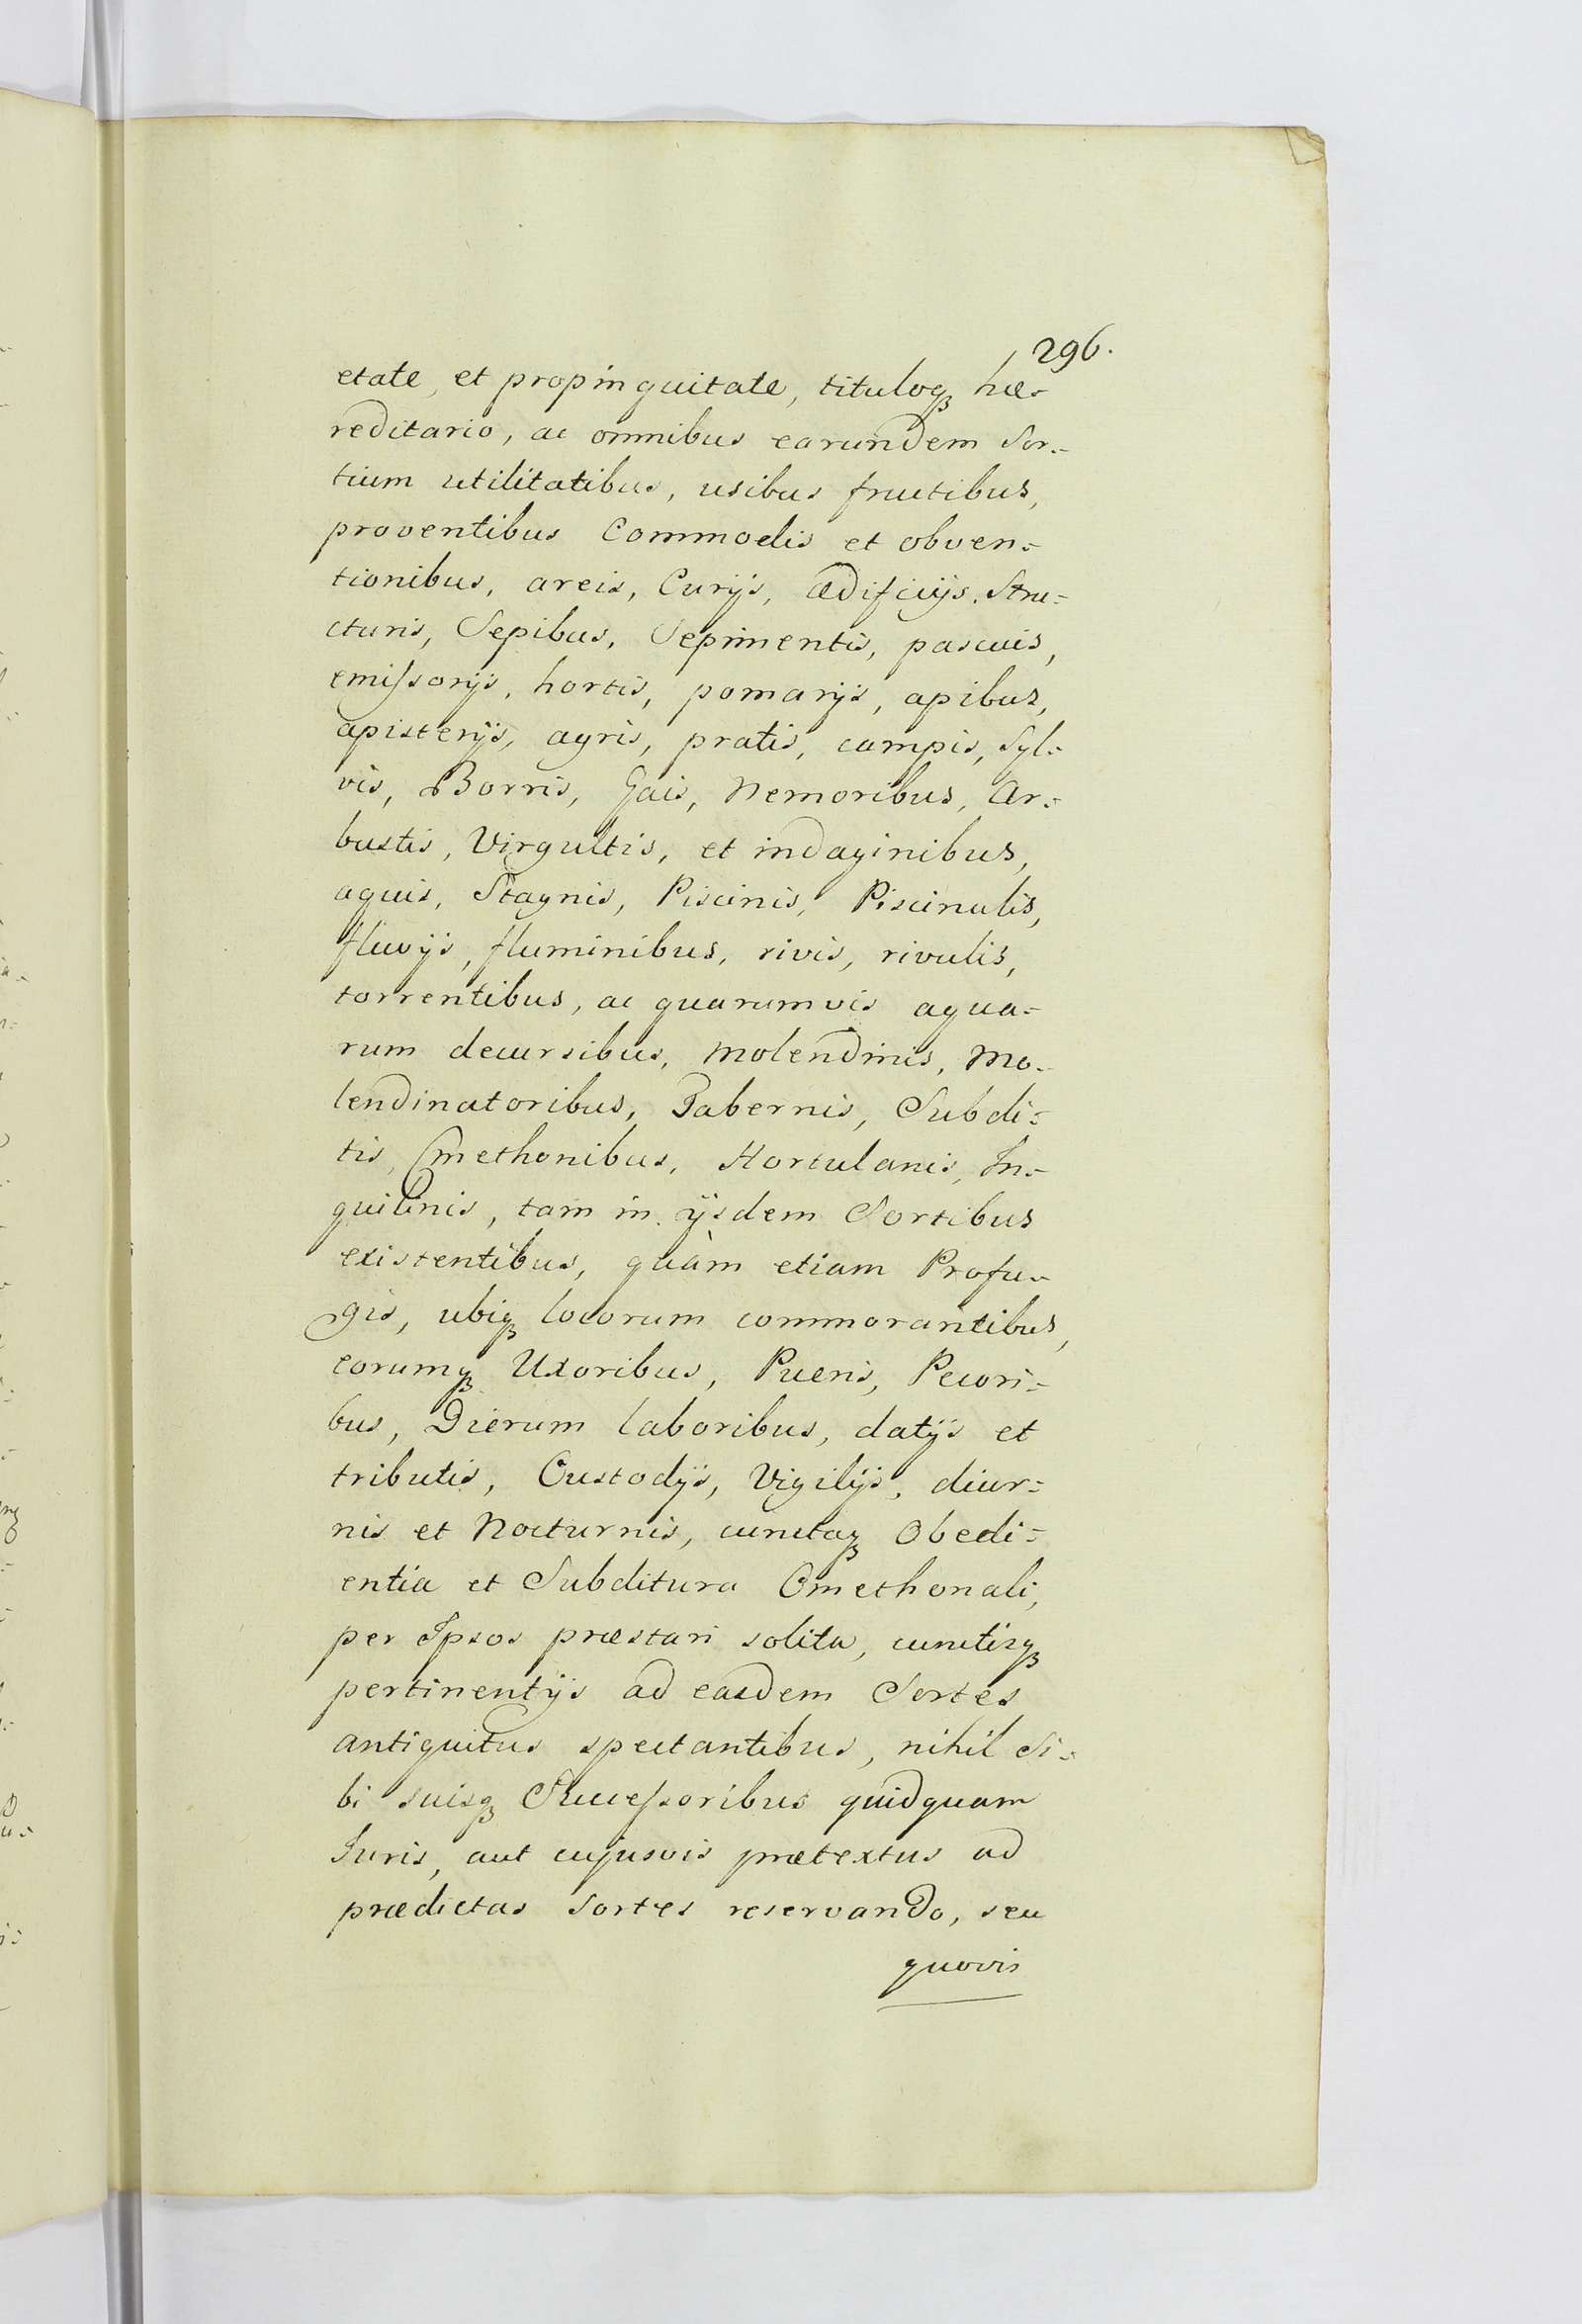 296.
etate, et propinquitate, tituloqꝫ hæ-
reditario, ac omnibus earundem Sor-
tium utilitatibus, usibus fructibus,
proventibus Commodis et obven-
tionibus, areis, Curijs, ædificijs, Stru-
cturis, Sepibus, Sepimentis, pascuis,
emissorijs, hortis, pomarijs, apibus,
apisterijs, agris, pratis, campis, Syl-
vis, Borris, Gais, Nemoribus, Ar-
bustis, Virgultis, et indaginibus,
aquis, Stagnis, Piscinis, Piscinulis,
fluvijs, fluminibus, rivis, rivulis,
torrentibus, ac quarumvis aqua-
rum decursibus, Molendinis, Mo-
lendinatoribus, Tabernis, Subdi-
tis, Cmethonibus, Hortulanis, In-
quilinis, tam in ijsdem Sortibus
existentibus, quàm etiam Profu-
gis, ubiqꝫ locorum commorantibus,
eorumqꝫ Uxoribus, Pueris, Pecori-
bus, Dierum laboribus, datijs et
tributis, Custodijs, Vigilijs, diur-
nis et Nocturnis, cunctaqꝫ Obedi-
entia et Subditura Cmethonali,
per Ipsos præstari solita, cunctisqꝫ
pertinentijs ad easdem Sortes
antiquitus spectantibus, nihil Si-
bi suisqꝫ Successoribus quidquam
Iuris, aut cujusvis prætextus ad
prædictas Sortes reservando, seu
quovis